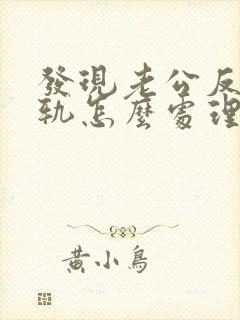 發現老公反
軌怎麼處理
黃小鳥